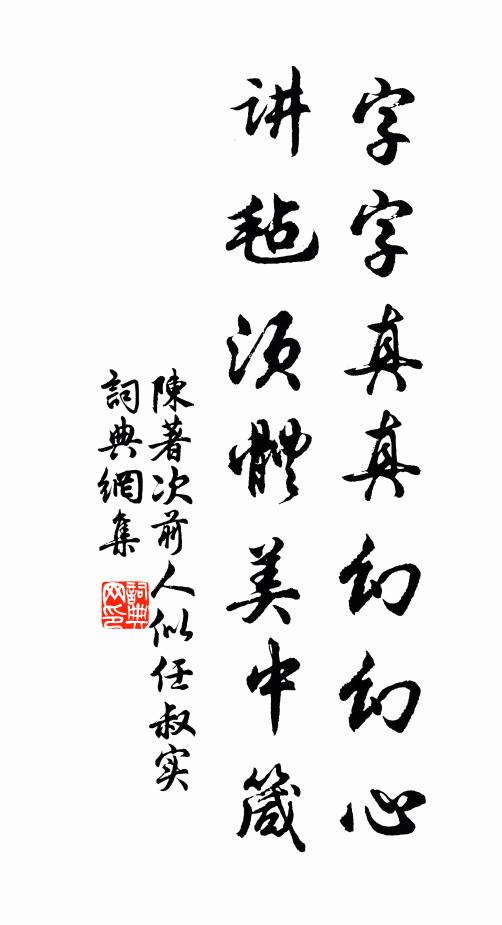 字字真真幻幻心
讲毡须體美中箴
陳著次前人似任叔实
詞典網集
詞典网印